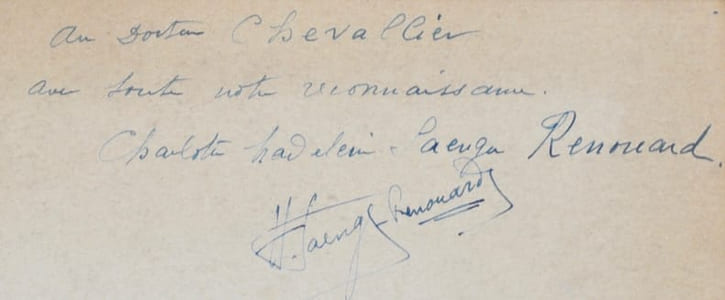 Au Docteur Chevallier
avec toute notre reconnaissance.
Charlotte Madelein - Saenger Renouard.
H. Saeng-Renouard